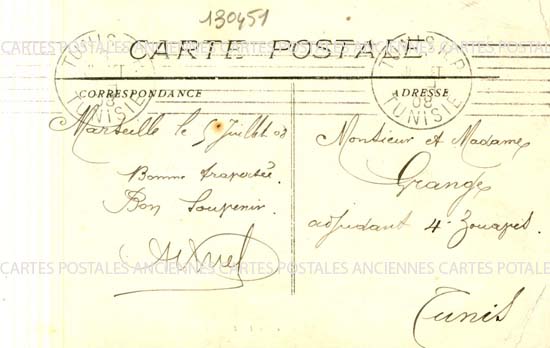 130451
CARTE POSTALE
TUNIS
TUNISIE
08
TUNIS
TUNISIE
08
CORRESPONDANCE
ADRESSE
CARTES POSTALES ANCIENNES CARTES POSTALES ANCIENNES CARTES POSTALES
Marseille le 5 Juillet 08
Bonne traversée
Bon Souvenir
Monsieur et Madame
Grange
adjudant 4e Zouaves.
Tunis
CARTES POSTALES ANCIENNES CARTES POSTALES ANCIENNES CARTES POTALE